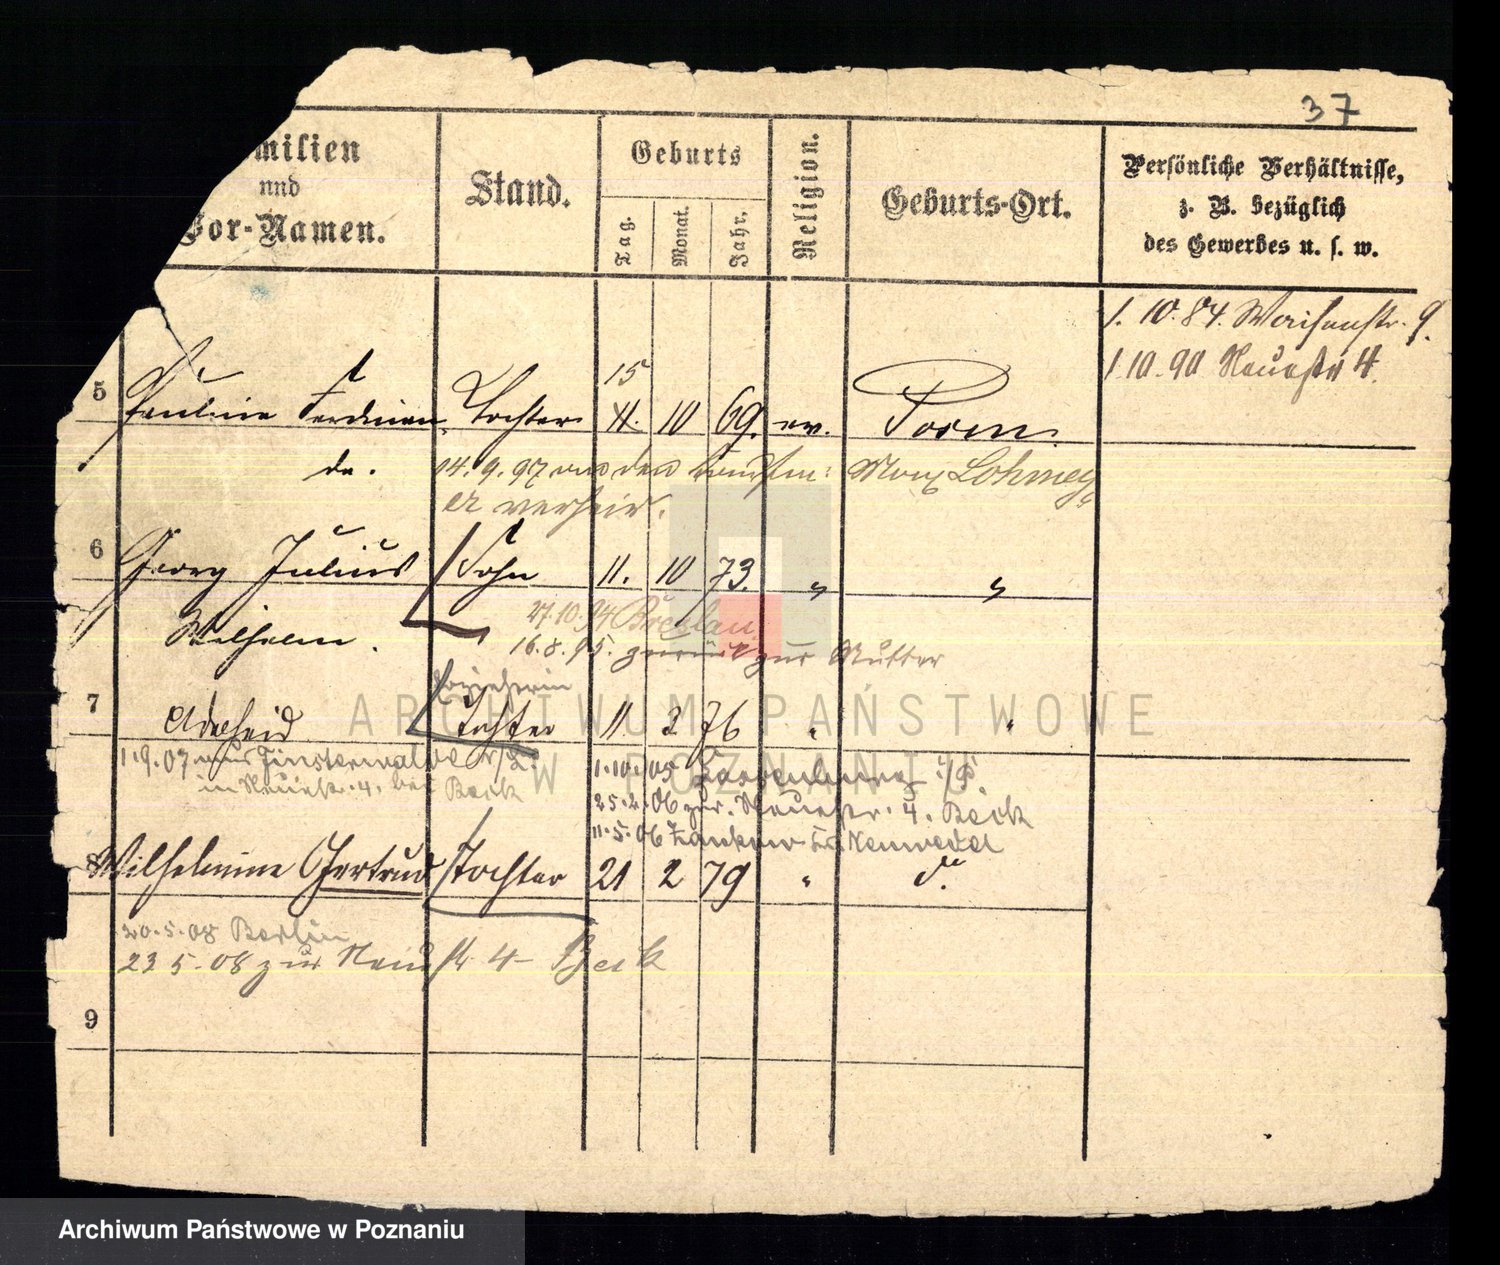 37
milien
und
Vor-Namen.
Stand.
Geburts
Tag.
Monat.
Jahr.
Religion.
Geburts-Ort.
Persönliche Verhältnisse,
z. B. bezüglich
des Gewerbes u. s. w.
1. 10. 84. Waisenstr. 9.
1.10.90 Neuestr 4.
15
5 Pauline Ferdinan Tochter 11. 10 69. ev. Posen.
de. 14.9.97 an den Kaufm: Max Lohmey
er verheir.
6 Georg Julius Sohn 11. 10 73. " "
27.10.94 Breslau
Wilhelm. 16.8.95. zurück zur Mutter
Erzieherin
7 Adelheid Tochter 11 2 76 " "
1.9.07 aus Finsterwalde N/L. 1.10.05
in Neuestr. 4. bei Beck 25.2.06 zur. Neuestr. 4. Beck
11.5.06 Zankow Kr. Neuwedel
8 Wilhelmine Gertrud Tochter 21 2 79 " d.
20.5.08 Berlin
23 5.08 zur Neuestr. 4 - Beck
9
ARCHIWUM PAŃSTWOWE
W POZNANIU
Archiwum Państwowe w Poznaniu